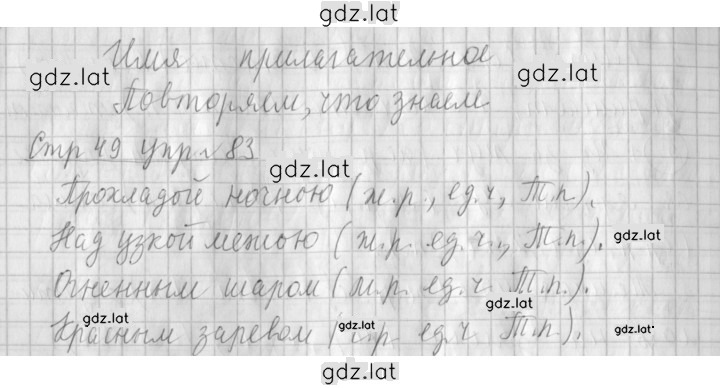 gdz.lat
Имя прилагательное
gdz.lat gdz.lat
Повторяем, что знаем
Стр 49 упр 83
gdz.lat
Прохладой ночною (ж.р., ед.ч, Т.п).
Над узкой межою (ж.р. ед.ч., Т.п.). gdz.lat
Огненным шаром (м.р. ед.ч. Т.п.).
gdz.lat
Красным заревом ( р. ед.ч. Т.п.).
gdz.lat gdz.lat gdz.lat
gdz.lat